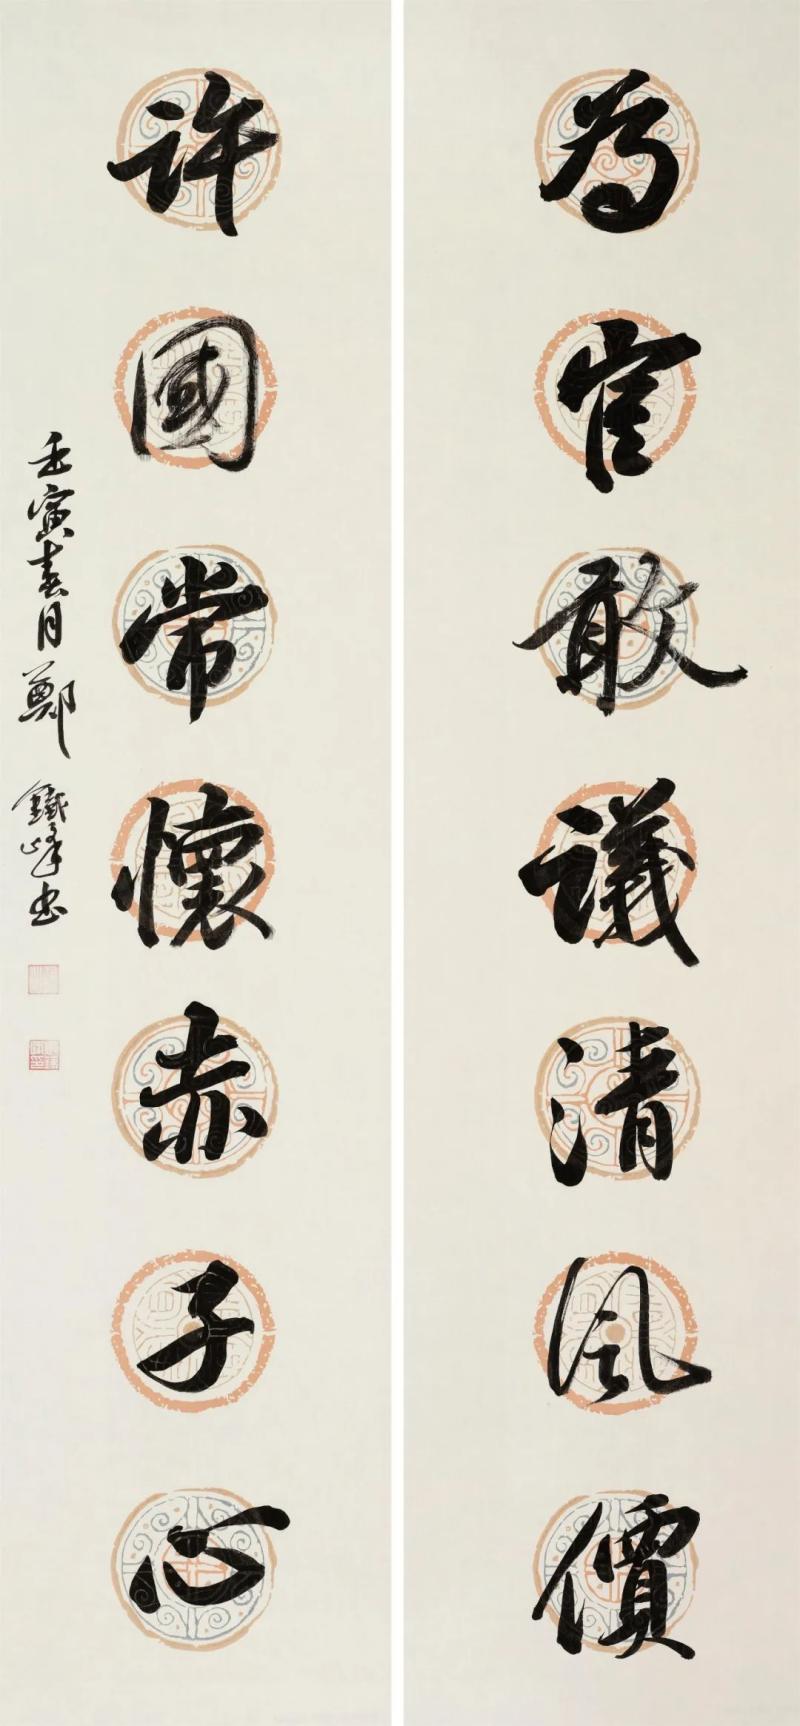 為官敢議清風價
許國常懷赤子心
壬寅春月鄭鐵峰書